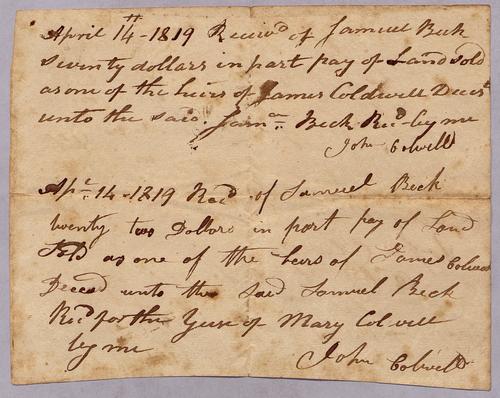 April 14th - 1819 Receivd of Samuel Beck
Seventy dollars in part pay of Land sold
as one of the heirs of James Coldwell Decest
unto the said. Saml Beck Recd by me
John Colwell
Apl 14 - 1819 Recd of Samuel Beck
twenty two Dollars in part pay of Land
Sold as one of the heirs of James Colwell
Deceed unto the Said Samuel Beck
Recd for the Yuse of Mary Colwell
by me
John Colwell